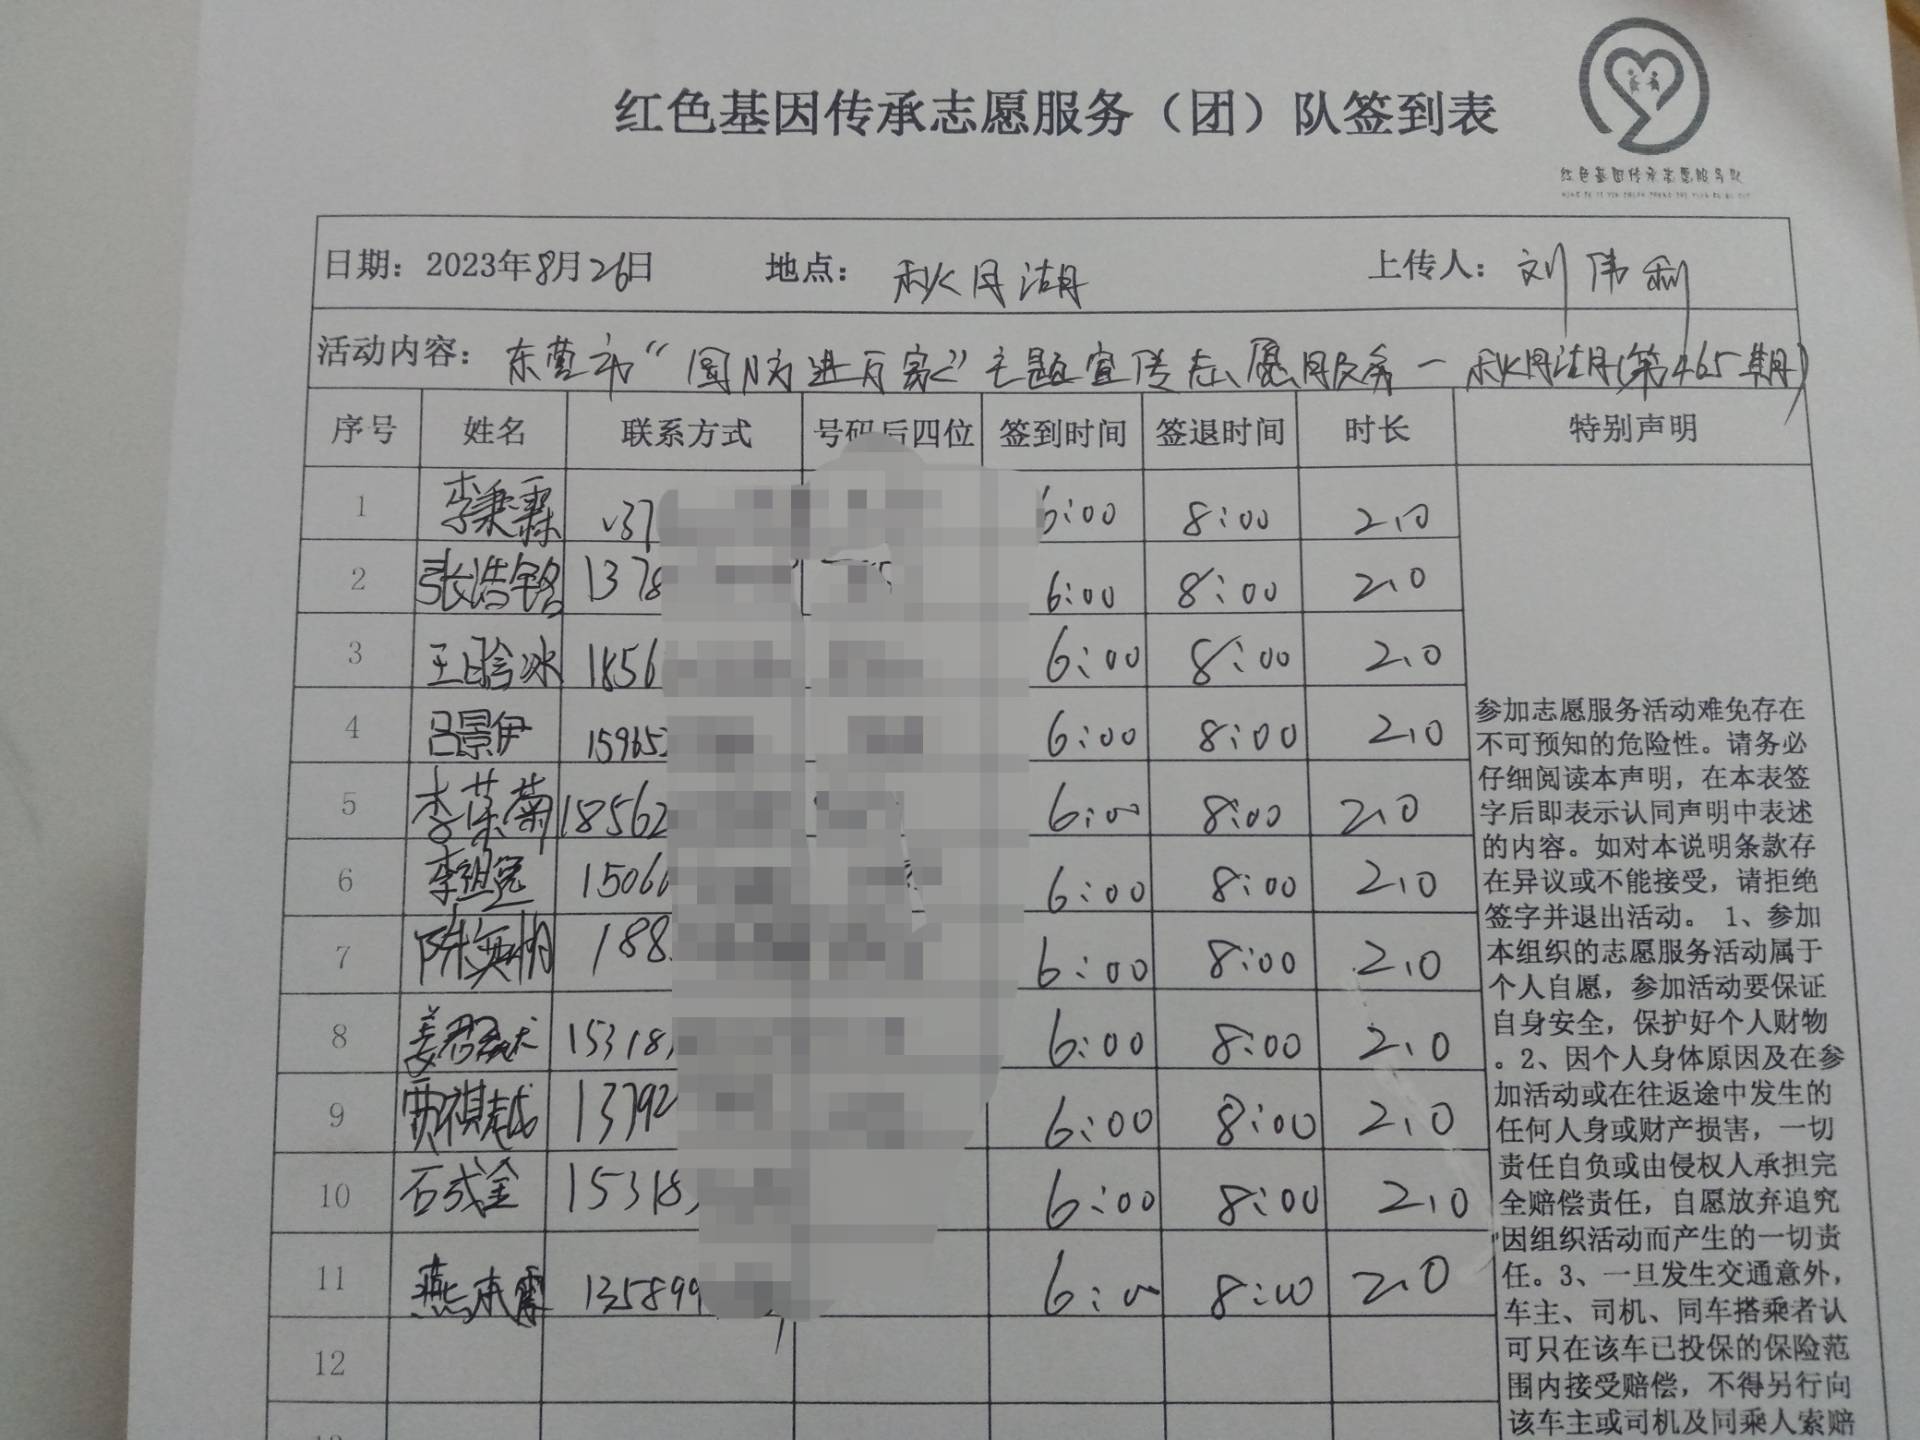 红色基因传承志愿服务（团）队签到表
红色基因传承志愿服务队
日期：2023年8月26日 地点：秋月湖 上传人：刘伟利
活动内容：东营市“国防进万家”主题宣传志愿服务—秋月湖(第465期)
序号 姓名 联系方式 号码后四位 签到时间 签退时间 时长 特别声明
1 李秉霖 137 6:00 8:00 2.0
2 张浩铭 1378 6:00 8:00 2.0
3 王晗冰 1856 6:00 8:00 2.0
4 吕景伊 15965 6:00 8:00 2.0
5 李荣菊 18562 6:00 8:00 2.0
6 李祖冕 15066 6:00 8:00 2.0
7 陈奕帆 188 6:00 8:00 2.0
8 姜君 15318 6:00 8:00 2.0
9 贾祺越 13792 6:00 8:00 2.0
10 石成金 15318 6:00 8:00 2.0
11 燕本霞 135899 6:00 8:00 2.0
12
参加志愿服务活动难免存在
不可预知的危险性。请务必
仔细阅读本声明，在本表签
字后即表示认同声明中表述
的内容。如对本说明条款存
在异议或不能接受，请拒绝
签字并退出活动。1、参加
本组织的志愿服务活动属于
个人自愿，参加活动要保证
自身安全，保护好个人财物
。2、因个人身体原因及在参
加活动或在往返途中发生的
任何人身或财产损害，一切
责任自负或由侵权人承担完
全赔偿责任，自愿放弃追究
因组织活动而产生的一切责
任。3、一旦发生交通意外，
车主、司机、同车搭乘者认
可只在该车已投保的保险范
围内接受赔偿，不得另行向
该车主或司机及同乘人索赔